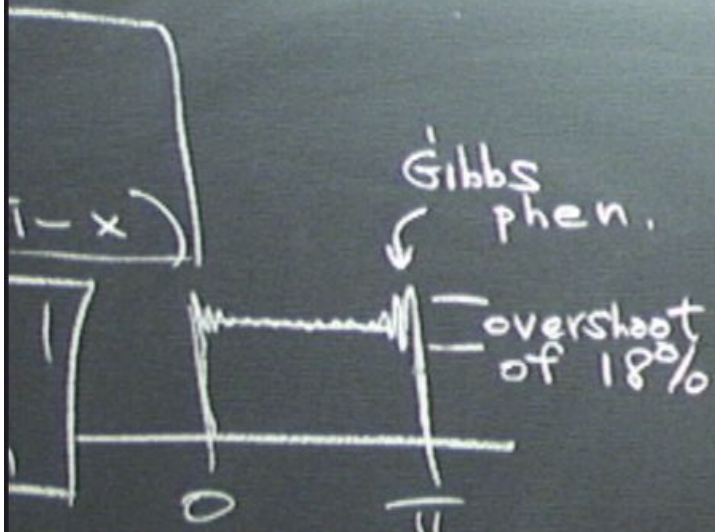 - x)
1
Gibbs
phen.
overshoot
of 18%
0 π